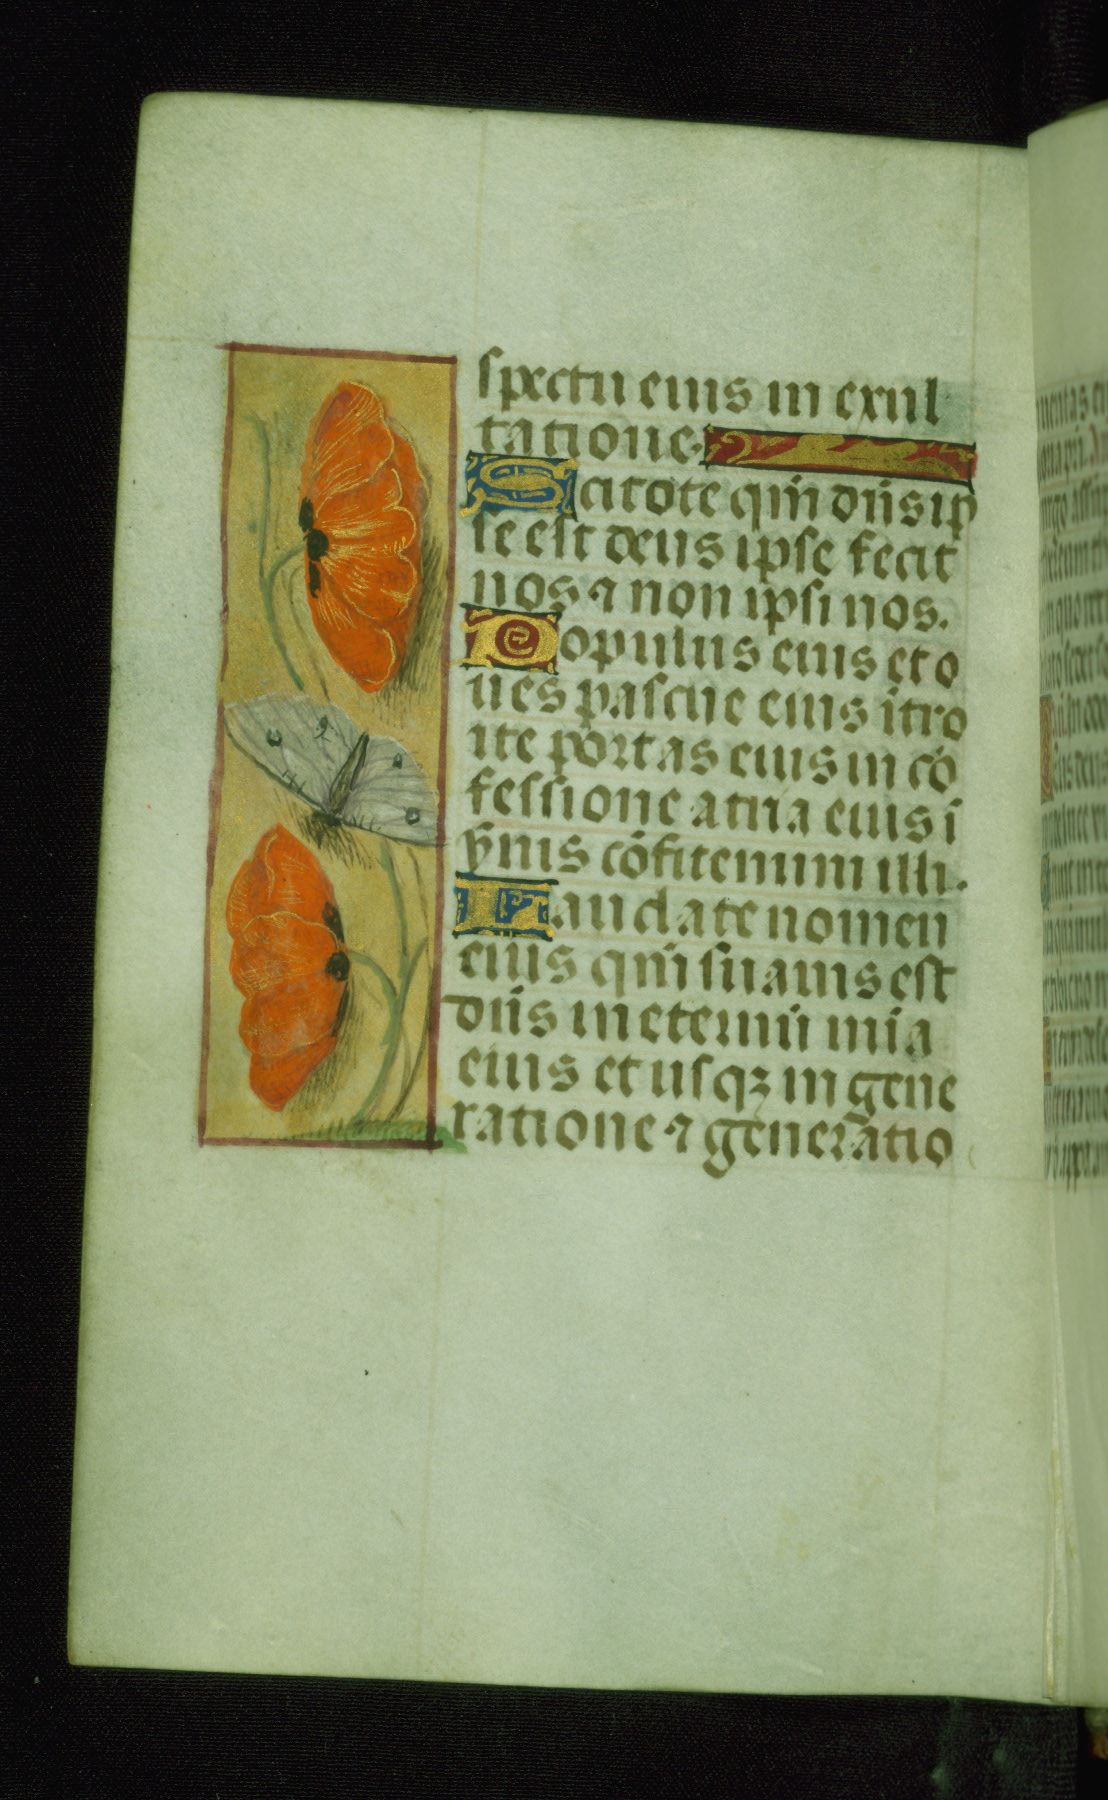 spectu eius in exul
tatione
Scitote qm̄ dn̄s ip̄
se est deus ipse fecit
nos ⁊ non ipsi nos.
Populus eius et o
ues pascue eius ītro
ite portas eius in cō
fessione atria eius ī
ẏnis cōfitemini illi.
Laudate nomen
eius qm̄ suauis est
dn̄s in eternū mīa
eius et usqꝫ in gene
ratione ⁊ generatio